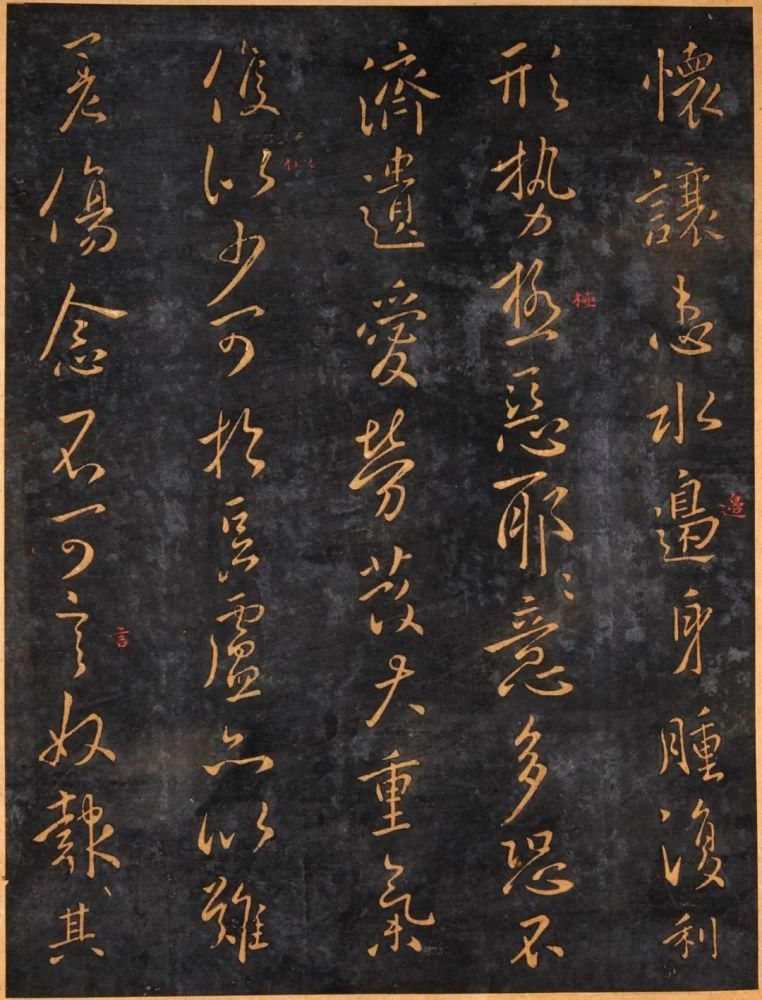 懷讓患水邊身腫復利
形勢極惡耶〻意多恐不
濟遺愛勞發大重氣
復以少可於盧亦以難
差傷念不可言奴報其
邊
極
言